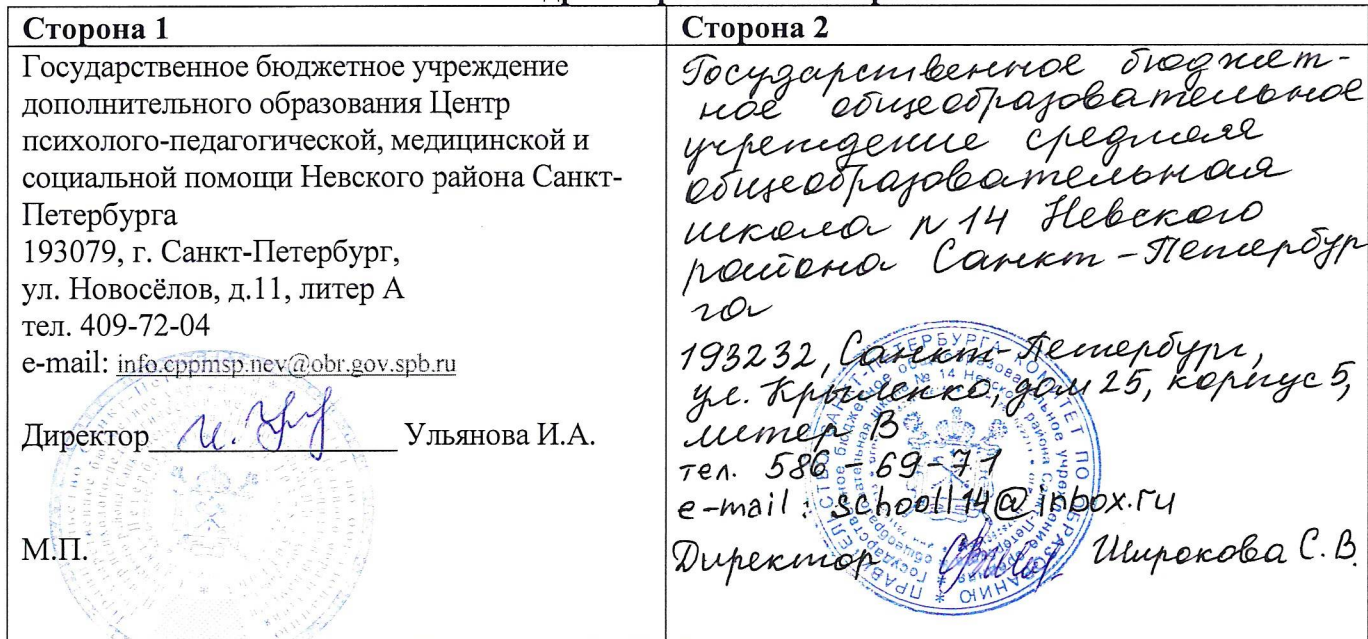 Сторона 1
Государственное бюджетное учреждение
дополнительного образования Центр
психолого-педагогической, медицинской и
социальной помощи Невского района Санкт-
Петербурга
193079, г. Санкт-Петербург,
ул. Новосёлов, д.11, литер А
тел. 409-72-04
e-mail: info.cppmsp.nev@obr.gov.spb.ru
Директор Ульянова И.А.
М.П.
Сторона 2
Государственное бюджет-
ное общеобразовательное
учреждение средняя
общеобразовательная
школа № 14 Невского
района Санкт-Петербур
га
193232, Санкт-Петербург,
ул. Крыленко, дом 25, корпус 5,
литер В
тел. 586-69-71
e-mail: school114@inbox.ru
Директор Широкова С.В.